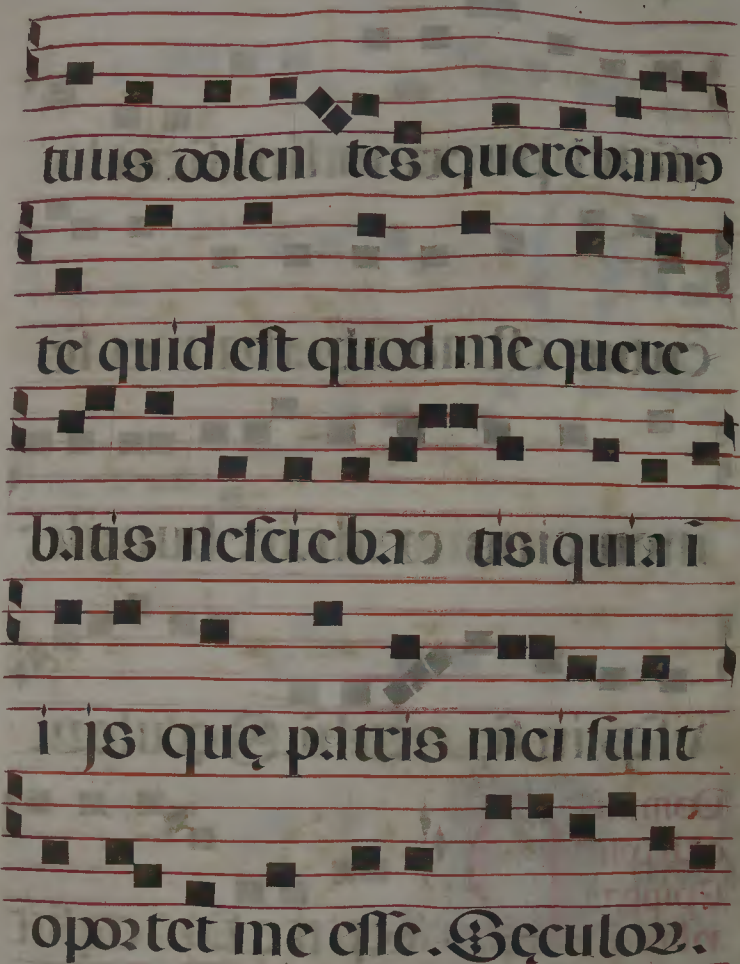 tuus dolen tes querebamꝰ
te quid est quod me quere
batis nescieba tis quia ī
i ijs quę patris mei sunt
oportet me esse. Sęculoꝝ.